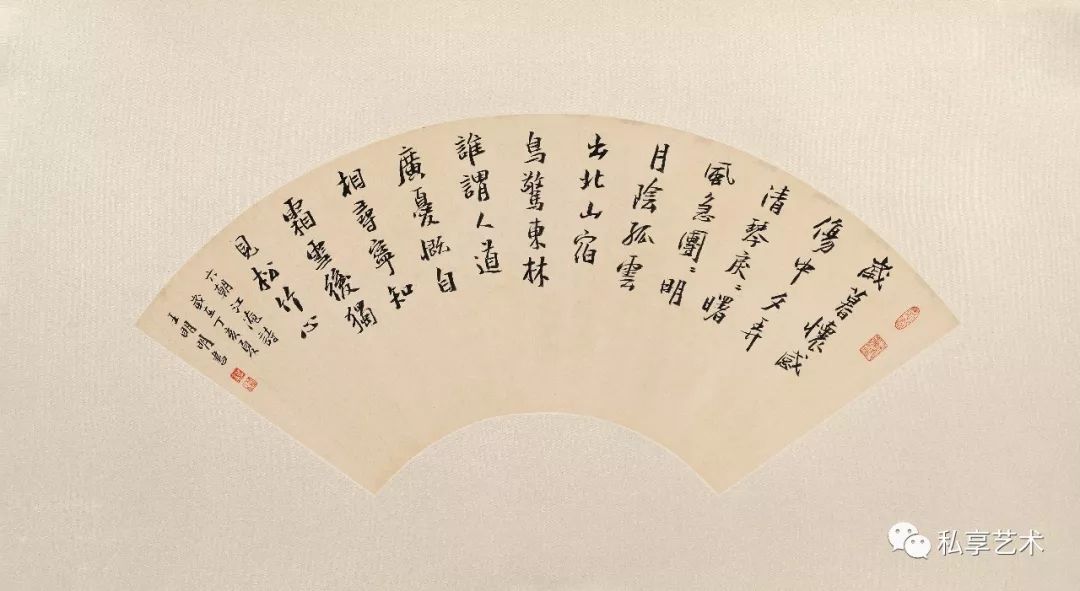 歲暮懷感
傷中夕弄
清琴戾〻曙
風急團〻明
月陰孤雲
出北山宿
鳥驚東林
誰謂人道
廣憂慨自
相尋寧知
霜雪後獨
見松竹心
六朝江淹詩
歲在丁亥夏
王明明書
私享艺术